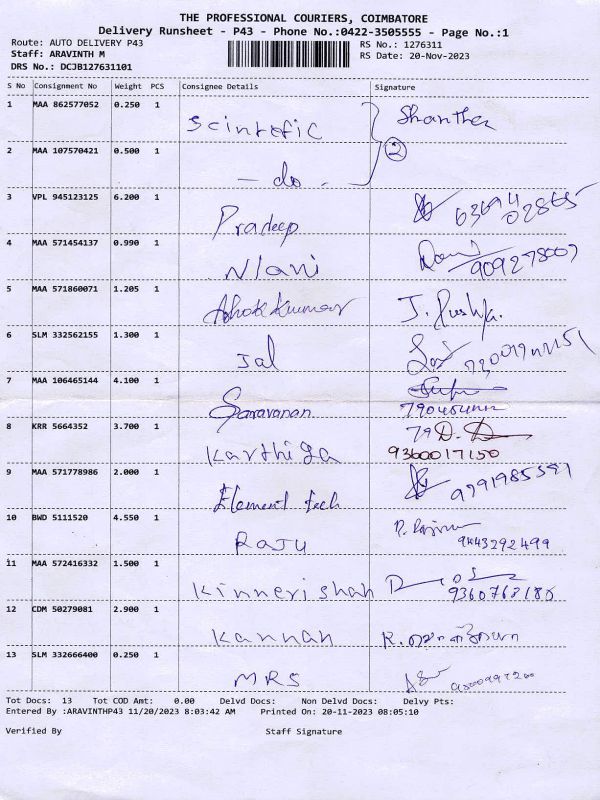 THE PROFESSIONAL COURIERS, COIMBATORE
Delivery Runsheet - P43 - Phone No.:0422-3505555 - Page No.:1
Route: AUTO DELIVERY P43 RS No.: 1276311
Staff: ARAVINTH M RS Date: 20-Nov-2023
DRS No.: DCJB127631101
S No Consignment No Weight PCS Consignee Details Signature
1 MAA 862577052 0.250 1 Scintefic Shantha
2 MAA 107570421 0.500 1 - do - 2
3 VPL 945123125 6.200 1 Pradeep
4 MAA 571454137 0.990 1 Nlani
5 MAA 571860071 1.205 1 Ashok Kumar J. Pushpa.
6 SLM 332562155 1.300 1 Jal
7 MAA 106465144 4.100 1 Saravanan
8 KRR 5664352 3.700 1 Karthiga 9360017150
9 MAA 571778986 2.000 1 Element tech
10 BWD 5111520 4.550 1 Raju 9443292499
11 MAA 572416332 1.500 1 Kinneri shah 9360768180
12 CDM 50279081 2.900 1 Kannan
13 SLM 332666400 0.250 1 MRS
Tot Docs: 13 Tot COD Amt: 0.00 Delvd Docs: Non Delvd Docs: Delvy Pts:
Entered By :ARAVINTHP43 11/20/2023 8:03:42 AM Printed On: 20-11-2023 08:05:10
Verified By Staff Signature